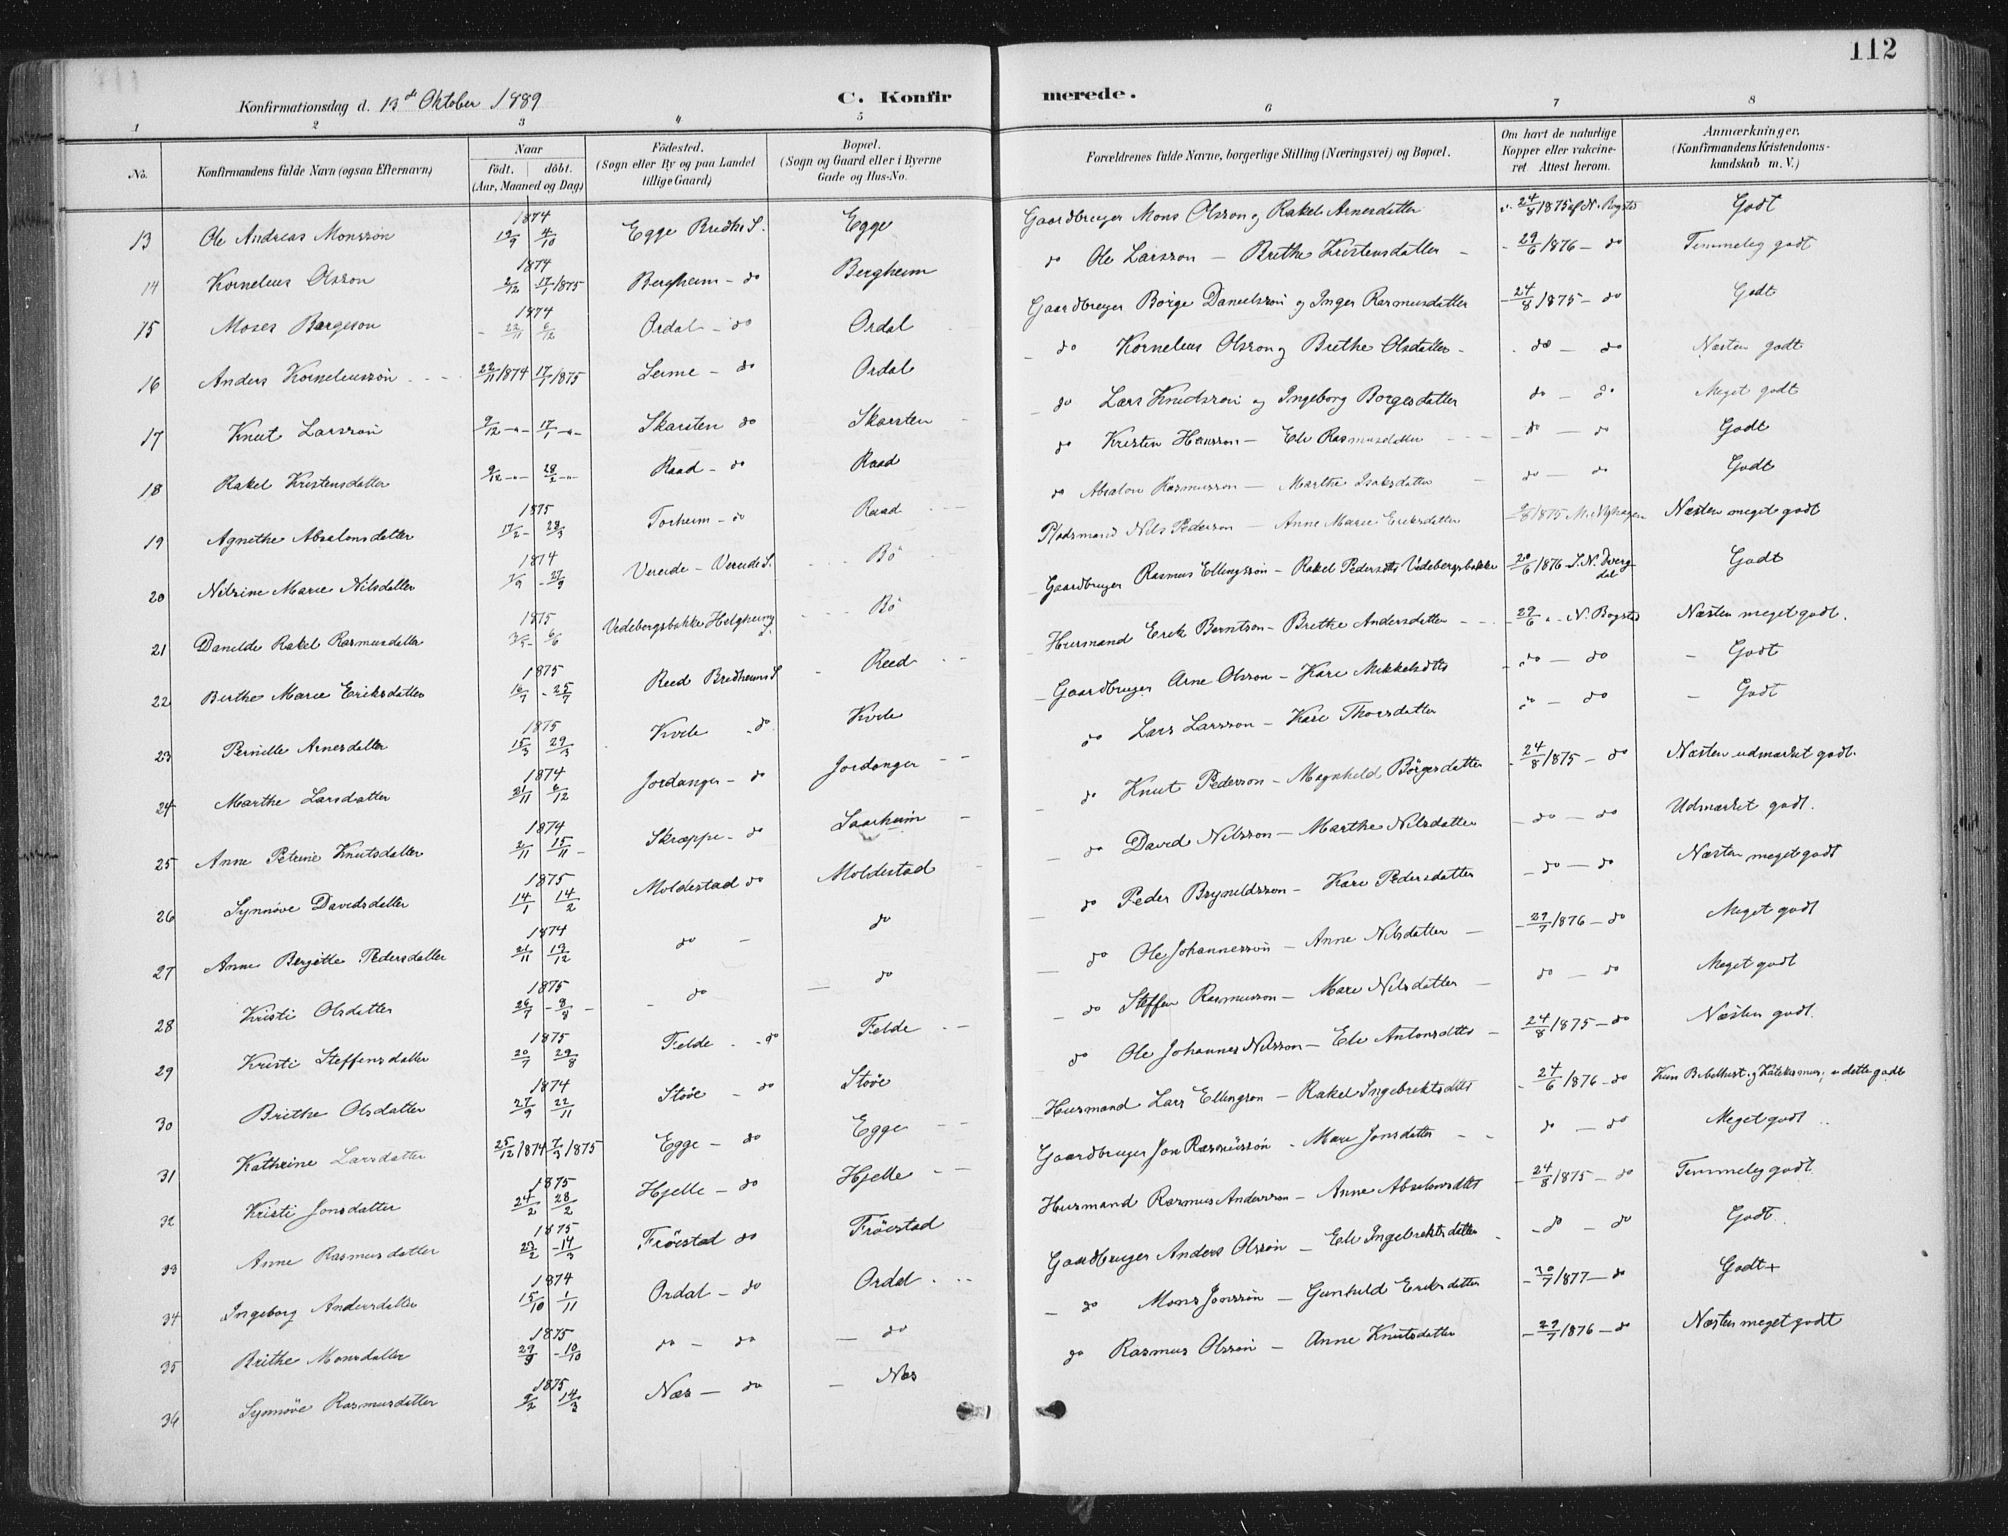 112
Konfirmationsdag d. 13de Oktober 1889
C. Konfirmerede.
1 2 3 4 5 6 7 8
No. Konfirmandens fulde Navn (ogsaa Efternavn) Naar født. døbt. (Aar, Maaned og Dag) Fødested. (Sogn eller By og paa Landet tillige Gaard) Bopæl. (Sogn og Gaard eller i Byerne Gade og Hus-No. Forældrenes fulde Navne, borgerlige Stilling (Næringsvei) og Bopæl. Om havt de naturlige Kopper eller vakcineret Attest herom. Anmærkninger. (Konfirmandens Kristendomskundskab m. V.)
13 Ole Andreas Monssön 1874 4/10 Egge Bredh. S. Egge Gaardbruger Mons Olsson og Rakel Arnesdatter 24/8 1875 af N. Bogsted Godt
14 Kornelius Olsson 1874 2/12 17/1 1875 Bergheim - do Bergheim do Ole Larsson - Brithe Kristensdatter - 29/6 1876 - do Temmelig godt
15 Moses Børgeson 1874 22/11 6/12 Ordal - do Ordal Gaardbruger Börge Danielssön og Inger Rasmusdatter 24/8 1875 - do Godt
16 Anders Korneliussön 22/11 1874 17/1 1875 Lerme - do Ordal do Kornelius Olsson og Brithe Olsdatter - do - do Næsten godt
17 Knut Larssön 9/12 -"- 17/1 -"- Skarsten do Skarsten do Lars Knudssön og Ingeborg Borgesdatter do - do Meget godt
18 Rakel Kristensdatter 9/12 -"- 28/2 -"- Raad - do Raad do Kristen Hansson - Eli Rasmusdatter - do - do Godt
19 Agnethe Absalonsdatter 1875 17/2 - 28/3 Torheim - do Raad do Absalon Rasmusson - Marthe Isaksdatter do - do Godt
20 Nilsine Marie Nilsdatter 1874 7/9 - 27/9 Vereide - Vereide S. Bö Pladsmand Nils Pederson - Anne Marie Eriksdatter 1875 M. Myhagen Næsten meget godt
21 Danilde Rakel Rasmusdatter 1875 3/5 6/6 Vedebergsbakke Helgheims S. Bö Gaardbruger Rasmus Ellingssön - Rakel Pedersdtr Vedebergsbakke 20/6 1876 - S. N. Dvergdal Godt
22 Birthe Marie Eriksdatter 1875 16/7 - 25/7 Reed Bredheims S. Reed Husmand Erik Berntson - Brithe Andersdatter 29/6 " - N. Bogsted Næsten meget godt.
23 Pernille Arnesdatter 1875 15/3 29/3 Kvile do Kvile Gaardbruger Arne Olsson - Kari Mikkelsdtr - do - do Godt
24 Marthe Larsdatter 1874 21/11 6/12 Jordanger - do Jordanger do Lars Larsson - Kari Thorsdatter do - do Godt
25 Anne Petrine Knutsdatter 1874 2/11 15/11 Skræppe - do Saarheim do Knut Pederson - Magnhild Börgesdatter 24/8 1875 - do Næsten udmærket godt.
26 Synnöve Davidsdatter 1875 14/1 14/2 Moldestad do Moldestad do David Nilsson - Marthe Nilsdatter - do - do Udmærket godt.
27 Anne Bergitte Pedersdatter 1874 21/11 13/12 do - do do Peder Brynildsson - Kari Pedersdatter - do - do Næsten meget godt
28 Kristi Olsdatter 1875 26/7 - 8/8 - do - do do Ole Johannessön - Anne Nilsdatter - 29/7 1876 - do Meget godt
29 Kristi Steffensdatter 1875 20/7 29/8 Felde - do Felde do Steffen Rasmusson - Mari Nilsdatter - do - do Meget godt
30 Brithe Olsdatter 1874 27/9 22/11 Stöve - do Stöve do Ole Johannes Nilsson - Eli Antonsdtr - 24/8 1875 - do Næsten godt.
31 Kathrine Larsdatter 25/12 1874 7/3 1875 Egge - do Egge Husmand Lars Ellingson - Rakel Ingebriktsdtr - 24/6 1876 - do Kun Bibelhist. og Katekismus, i dette godt
32 Kristi Jonsdatter 1875 24/2 28/2 Hjelle - do Hjelle Gaardbruger Jon Rasmussön - Mari Jonsdatter - do - do Meget godt.
33 Anne Rasmusdatter 1875 23/2 - 14/3 Fröestad do Fröestad Husmand Rasmus Andersson - Anne Absalonsdtr - 24/8 1875 - do Temmelig godt.
34 Ingeborg Andersdatter 1874 15/10 1/11 Ordal - do Ordal Gaardbruger Anders Olssön - Eli Ingebriktsdatter - do - do Godt.
35 Brithe Monsdatter 1875 29/9 - 10/10 do - do - do - do Mons Jonssön - Gunhild Eriksdatter - 30/7 1877 - do Godt+
36 Synnöve Rasmusdatter 1875 9/2 14/3 Næs - do - Næs do Rasmus Olssön - Anne Knutsdatter - 29/7 1876 - do Næsten meget godt